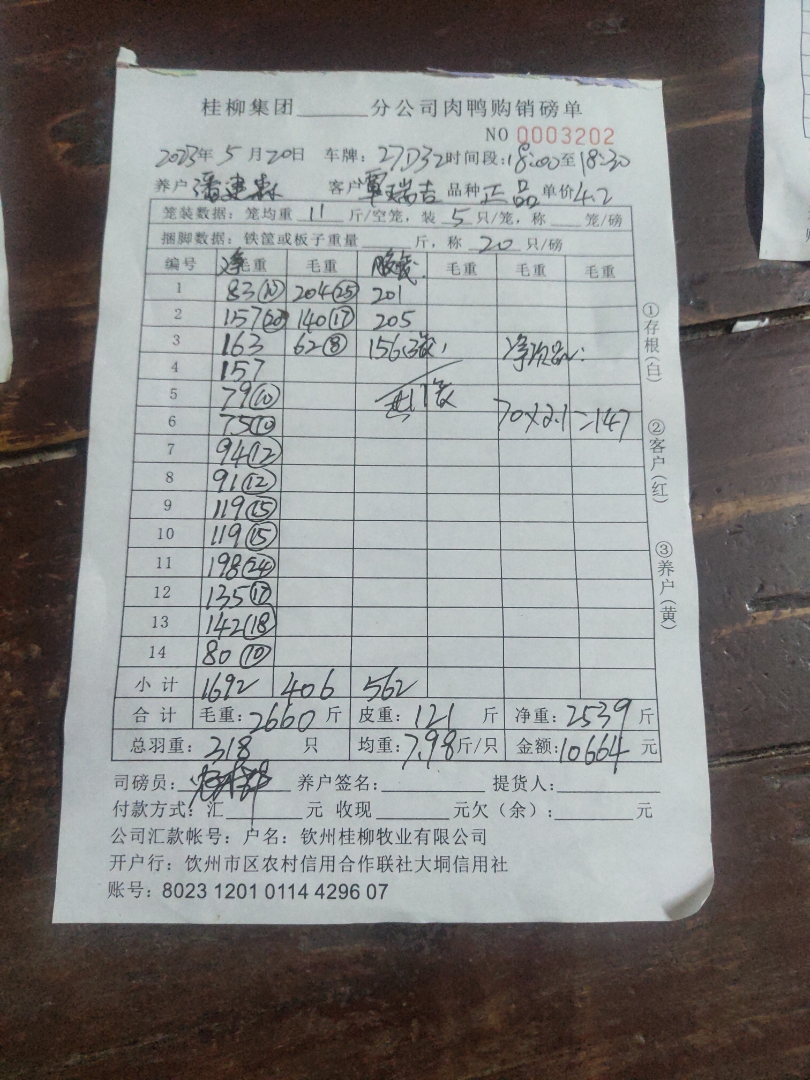 桂柳集团______分公司肉鸭购销磅单
NO 0003202
2023年5月20日 车牌：27D32 时间段：18:00至18:30
养户 潘建森 客户 覃瑞吉 品种 正品 单价4.2
笼装数据：笼均重 11 斤/空笼，装 5 只/笼，称____笼/磅
捆脚数据：铁筐或板子重量______斤，称 20 只/磅
编号 毛重 毛重 毛重 毛重 毛重
1 83⑩ 204㉕ 201
2 157⑳ 140⑰ 205
3 163 62⑧ 156 净次品：
4 157
5 79⑩ 共11笼
6 75⑩ 70×2.1=147
7 94⑫
8 91⑫
9 119⑮
10 119⑮
11 198㉔
12 135⑰
13 142⑱
14 80⑩
小计 1692 406 562
合计 毛重：2660斤 皮重：121斤 净重：2539斤
总羽重：318只 均重：7.98斤/只 金额：10664元
司磅员：______ 养户签名：______ 提货人：______
付款方式：汇______元 收现______元欠（余）：______元
公司汇款帐号：户名：钦州桂柳牧业有限公司
开户行：钦州市区农村信用合作联社大垌信用社
账号：8023 1201 0114 4296 07
①存根（白）
②客户（红）
③养户（黄）